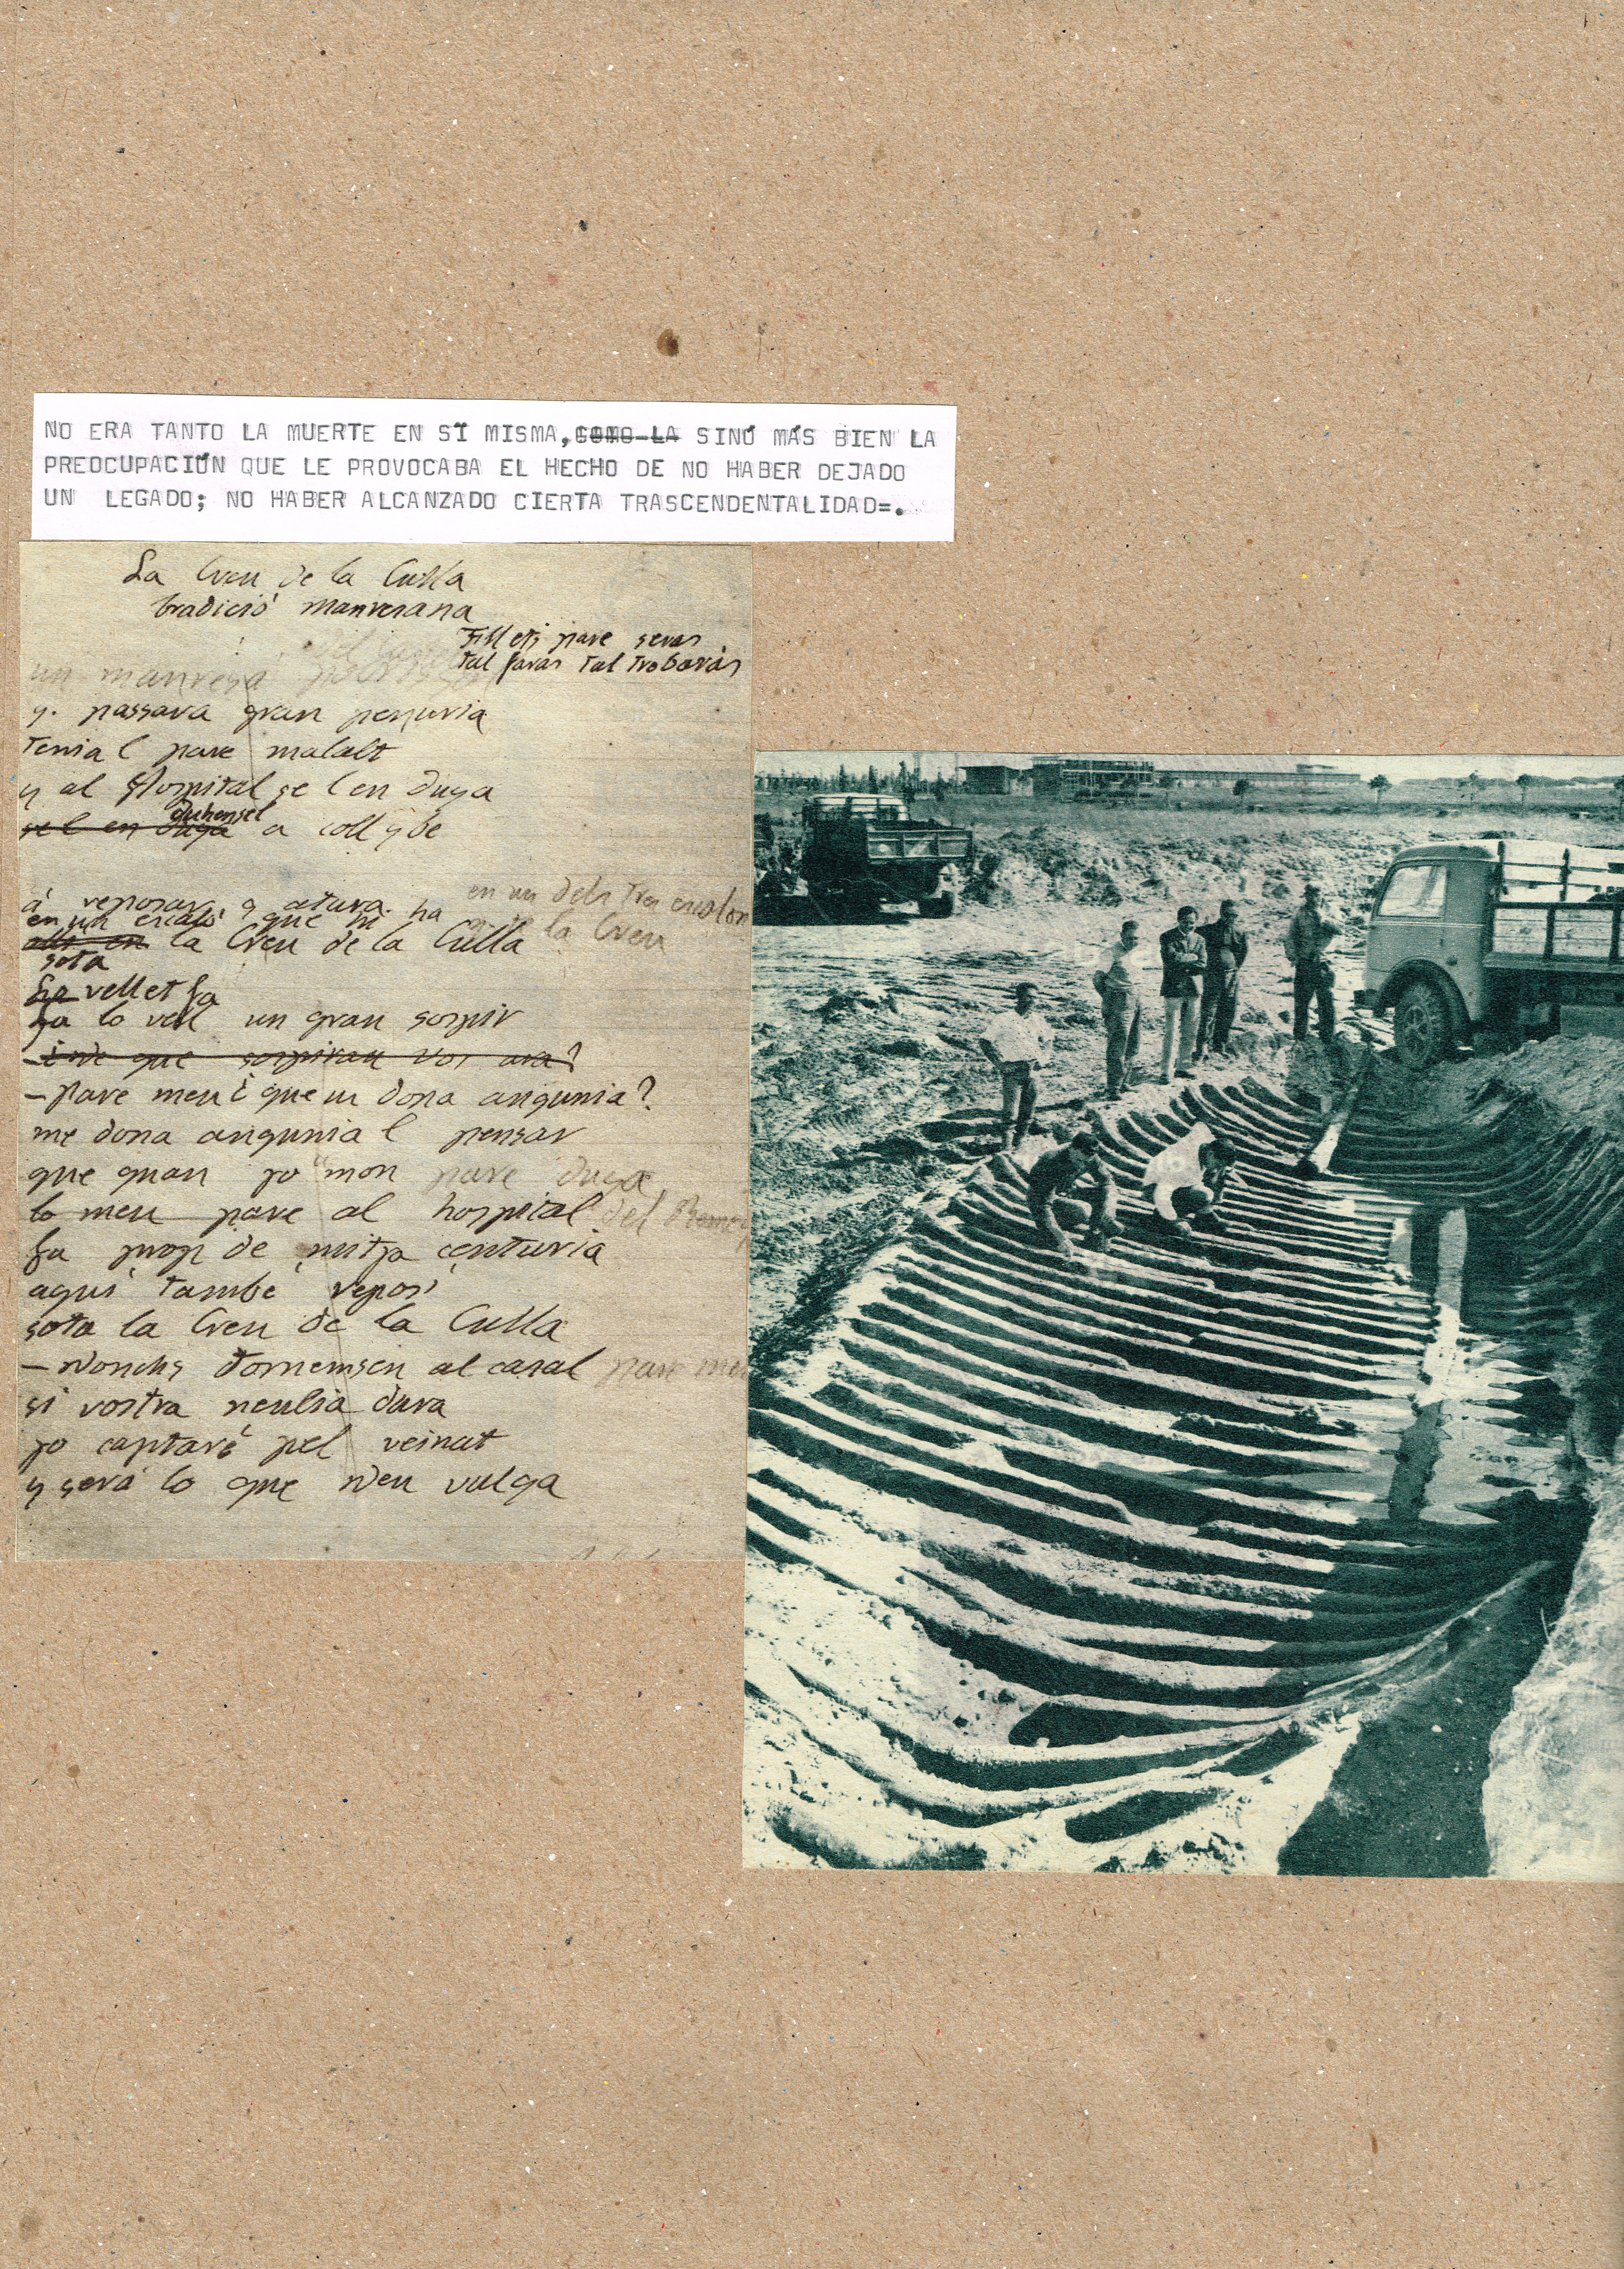 NO ERA TANTO LA MUERTE EN SÍ MISMA, COMO LA SINÓ MÁS BIEN LA
PREOCUPACIÓN QUE LE PROVOCABA EL HECHO DE NO HABER DEJADO
UN LEGADO; NO HABER ALCANZADO CIERTA TRASCENDENTALIDAD=.
La Creu de la Culla
tradició manresana
Fill ets pare seras
tal faras tal trobaràs
un manresà
q. passava gran penuria
Tenia l pare malalt
y al Hospital se l en duya
se l en duya duhensel a coll y be
á reposar s atura
en un dels tres escalons
en un escaló que hi ha
la Creu
la Creu de la Culla
sota
Lo vellet fa
fa lo vell un gran sospir
– de que sospirau vos ara?
– Pare meu ¿ que us dona angunia?
me dona angunia l pensar
que quan jo mon pare duya
lo meu pare al hospital del
fa prop de mitja centuria
aquí també reposí
sota la Creu de la Culla
– Donchs tornemsen al casal pare meu
si vostra neulia dura
jo captaré pel veinat
y será lo que Deu vulga